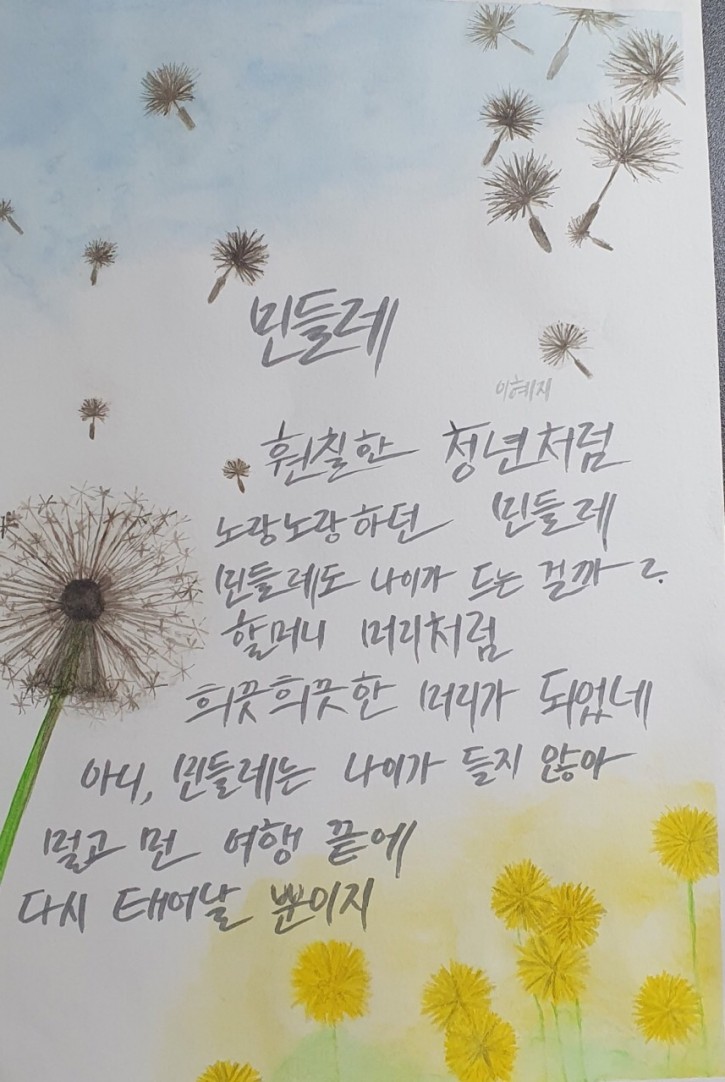 민들레
이혜지
훤칠한 청년처럼
노랑노랑하던 민들레
민들레도 나이가 드는 걸까?
할머니 머리처럼
희끗희끗한 머리가 되었네
아니, 민들레는 나이가 들지 않아
멀고 먼 여행 끝에
다시 태어날 뿐이지